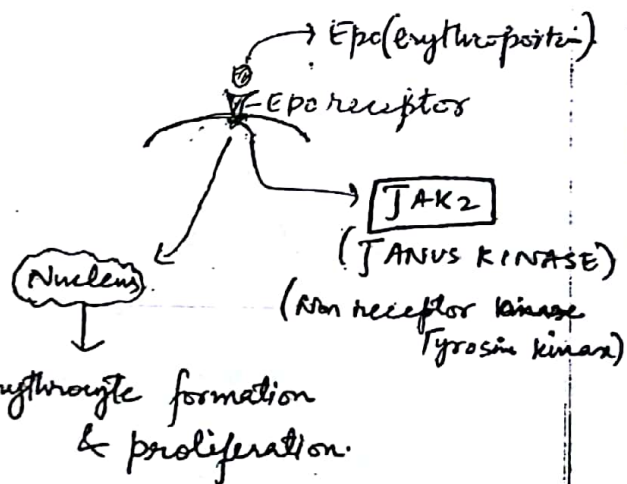 Epo(erythropoietin)
Epo receptor
JAK2
(JANUS KINASE)
(Non receptor kinase
Tyrosine kinase)
Nucleus
erythrocyte formation
& proliferation.